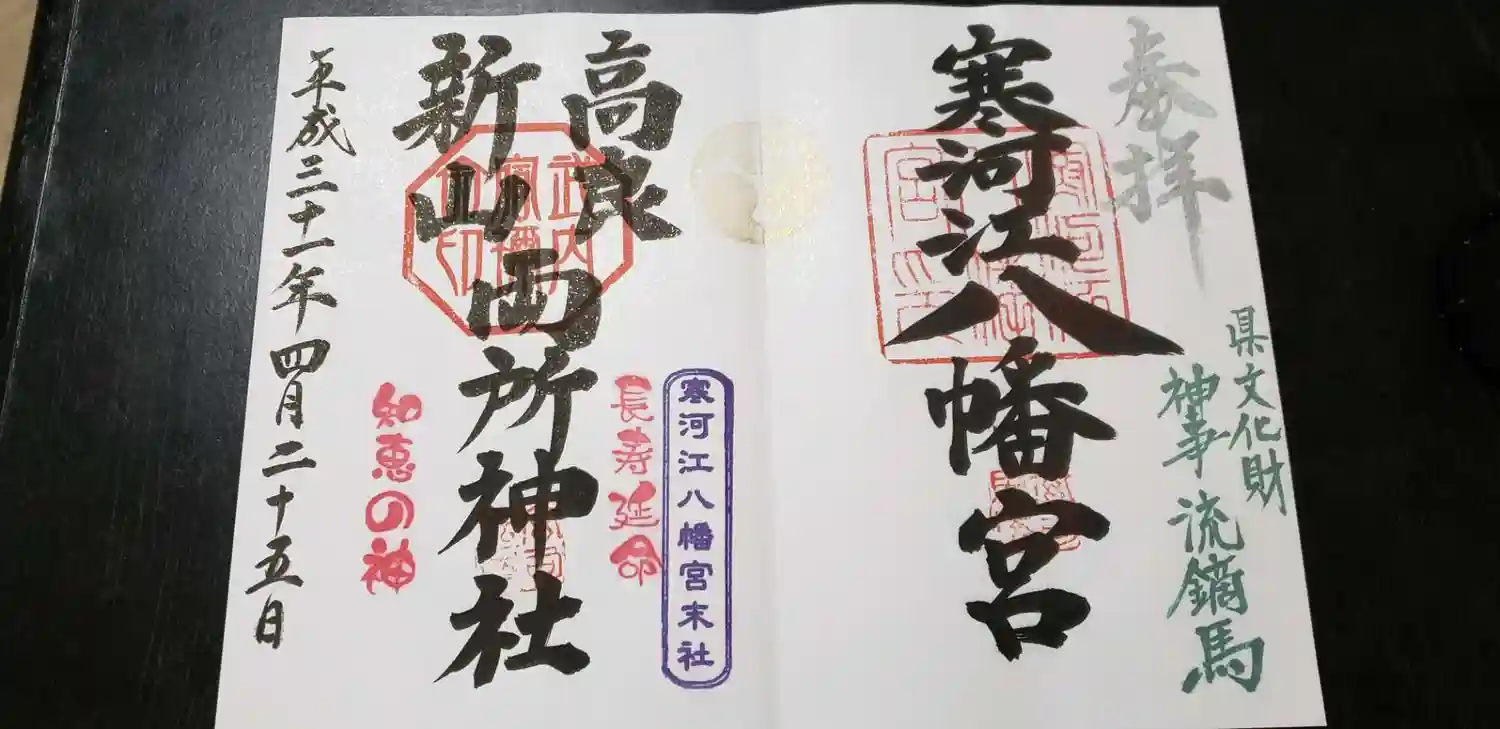 奉拝
県文化財
神事 流鏑馬
寒河江八幡宮
寒河江八幡宮末社
長寿延命
高良
新山両所神社
知恵の神
平成三十一年四月二十五日